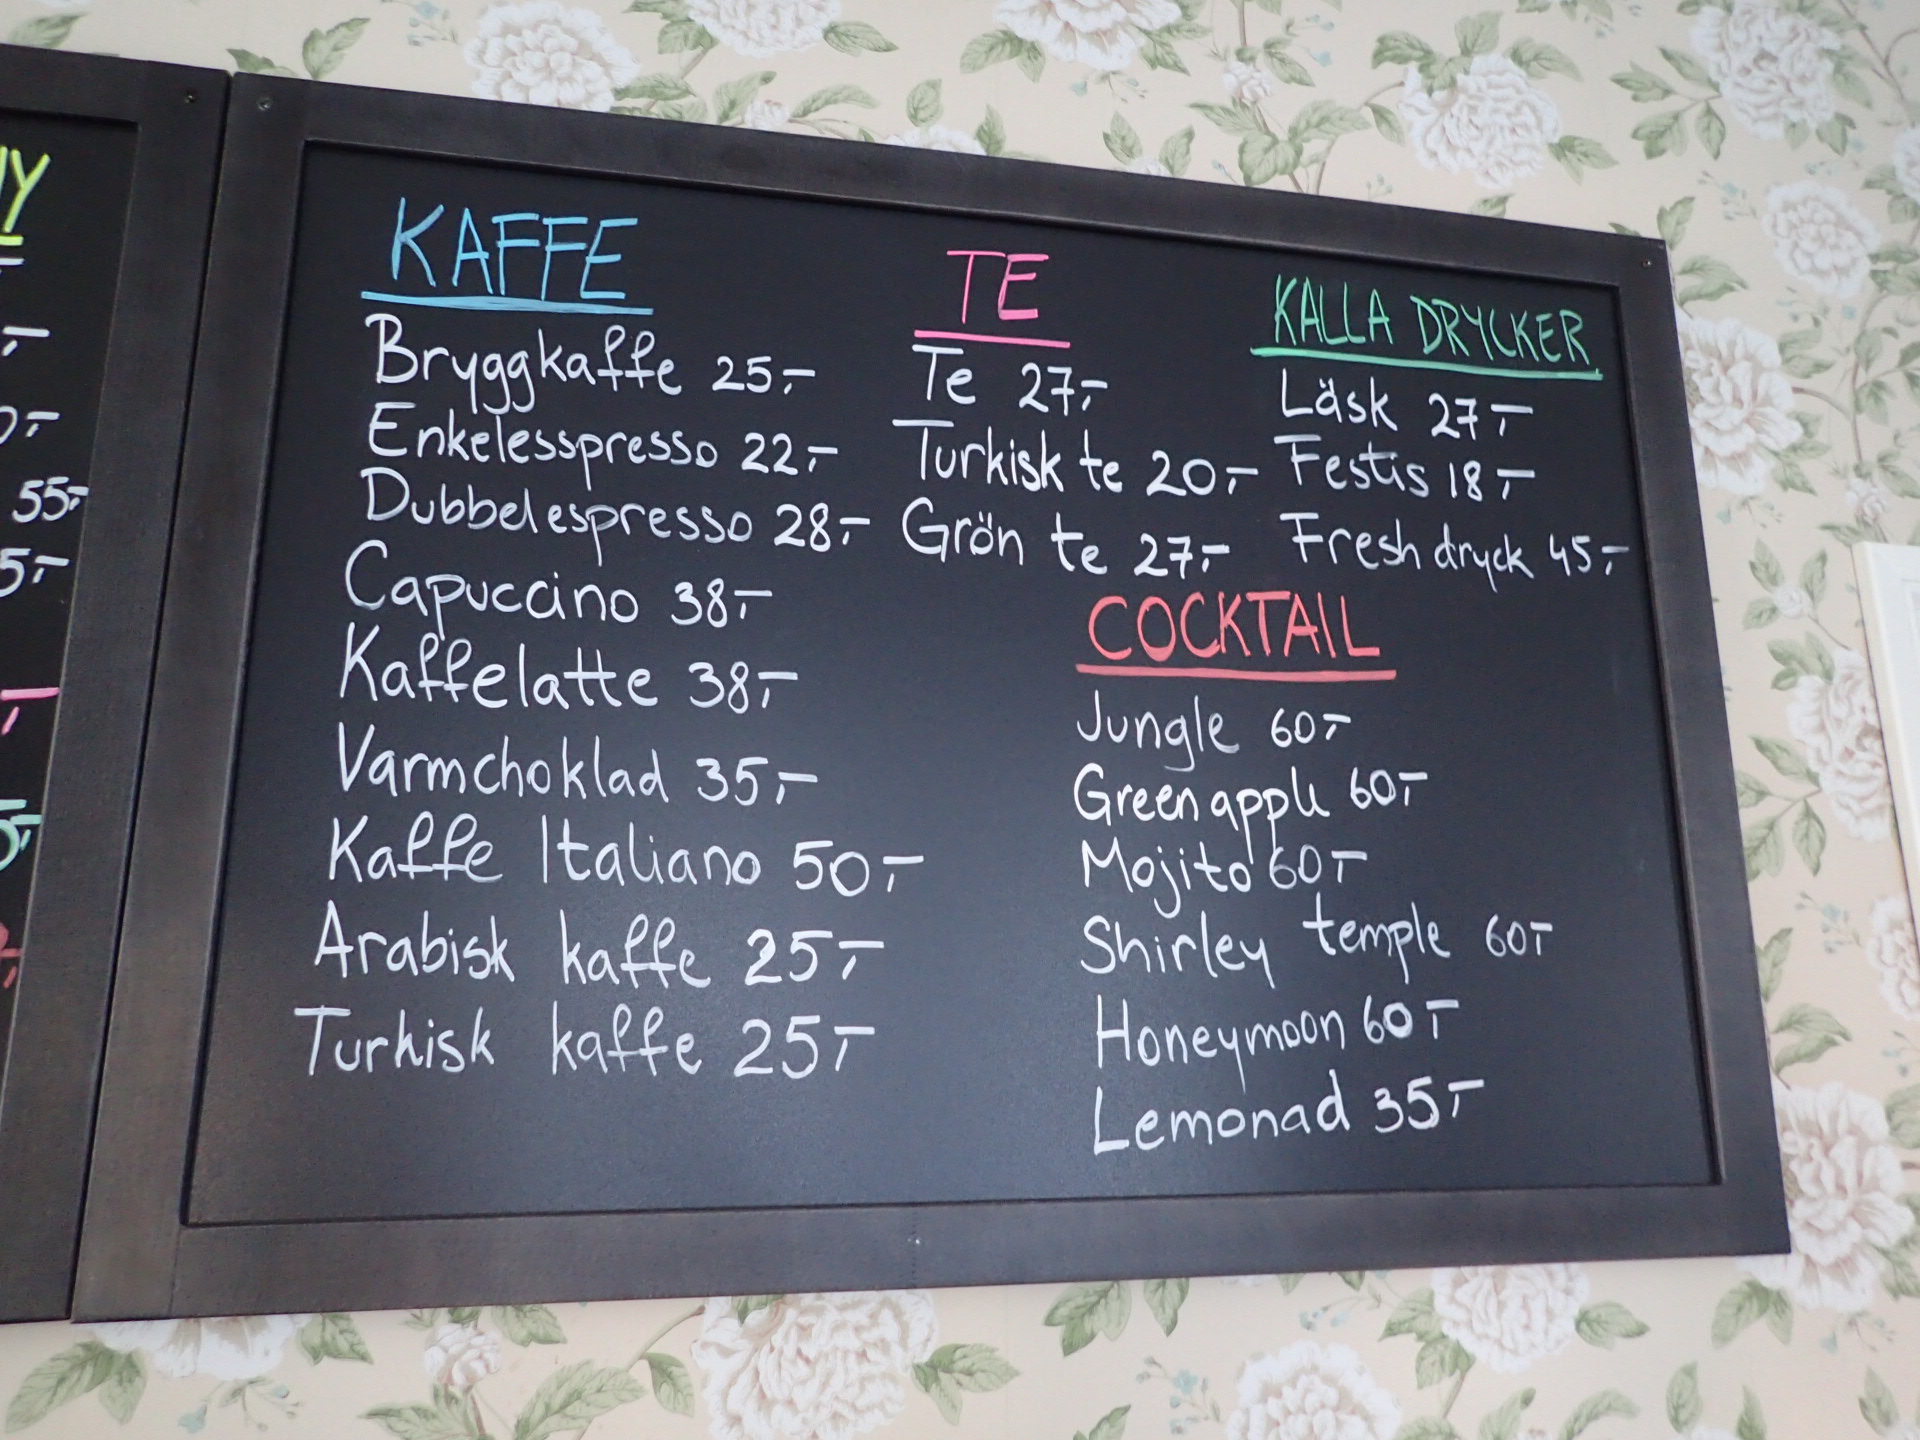 Y
55:-
5:-
KAFFE
Bryggkaffe 25:-
Enkelesspresso 22:-
Dubbelespresso 28:-
Capuccino 38:-
Kaffelatte 38:-
Varmchoklad 35:-
Kaffe Italiano 50:-
Arabisk kaffe 25:-
Turkisk kaffe 25:-
TE
Te 27:-
Turkisk te 20:-
Grön te 27:-
KALLA DRYCKER
Läsk 27:-
Festis 18:-
Fresh dryck 45:-
COCKTAIL
Jungle 60:-
Green apple 60:-
Mojito 60:-
Shirley temple 60:-
Honeymoon 60:-
Lemonad 35:-